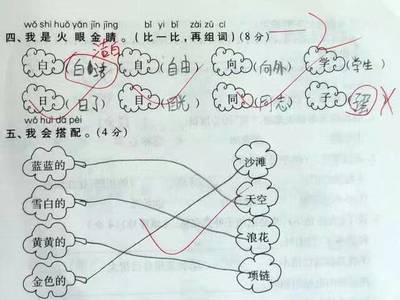 wǒ shì huǒ yǎn jīn jīng bǐ yi bǐ zài zǔ cí
四、我是火眼金睛。(比一比,再组词)(8分)
洁白
白 自(自由) 向(向外) 学(学生)
日(日子) 目(目光) 同(同志) 子
wǒ huì dā pèi
五、我会搭配。(4分)
蓝蓝的 沙滩
雪白的 天空
黄黄的 浪花
金色的 项链